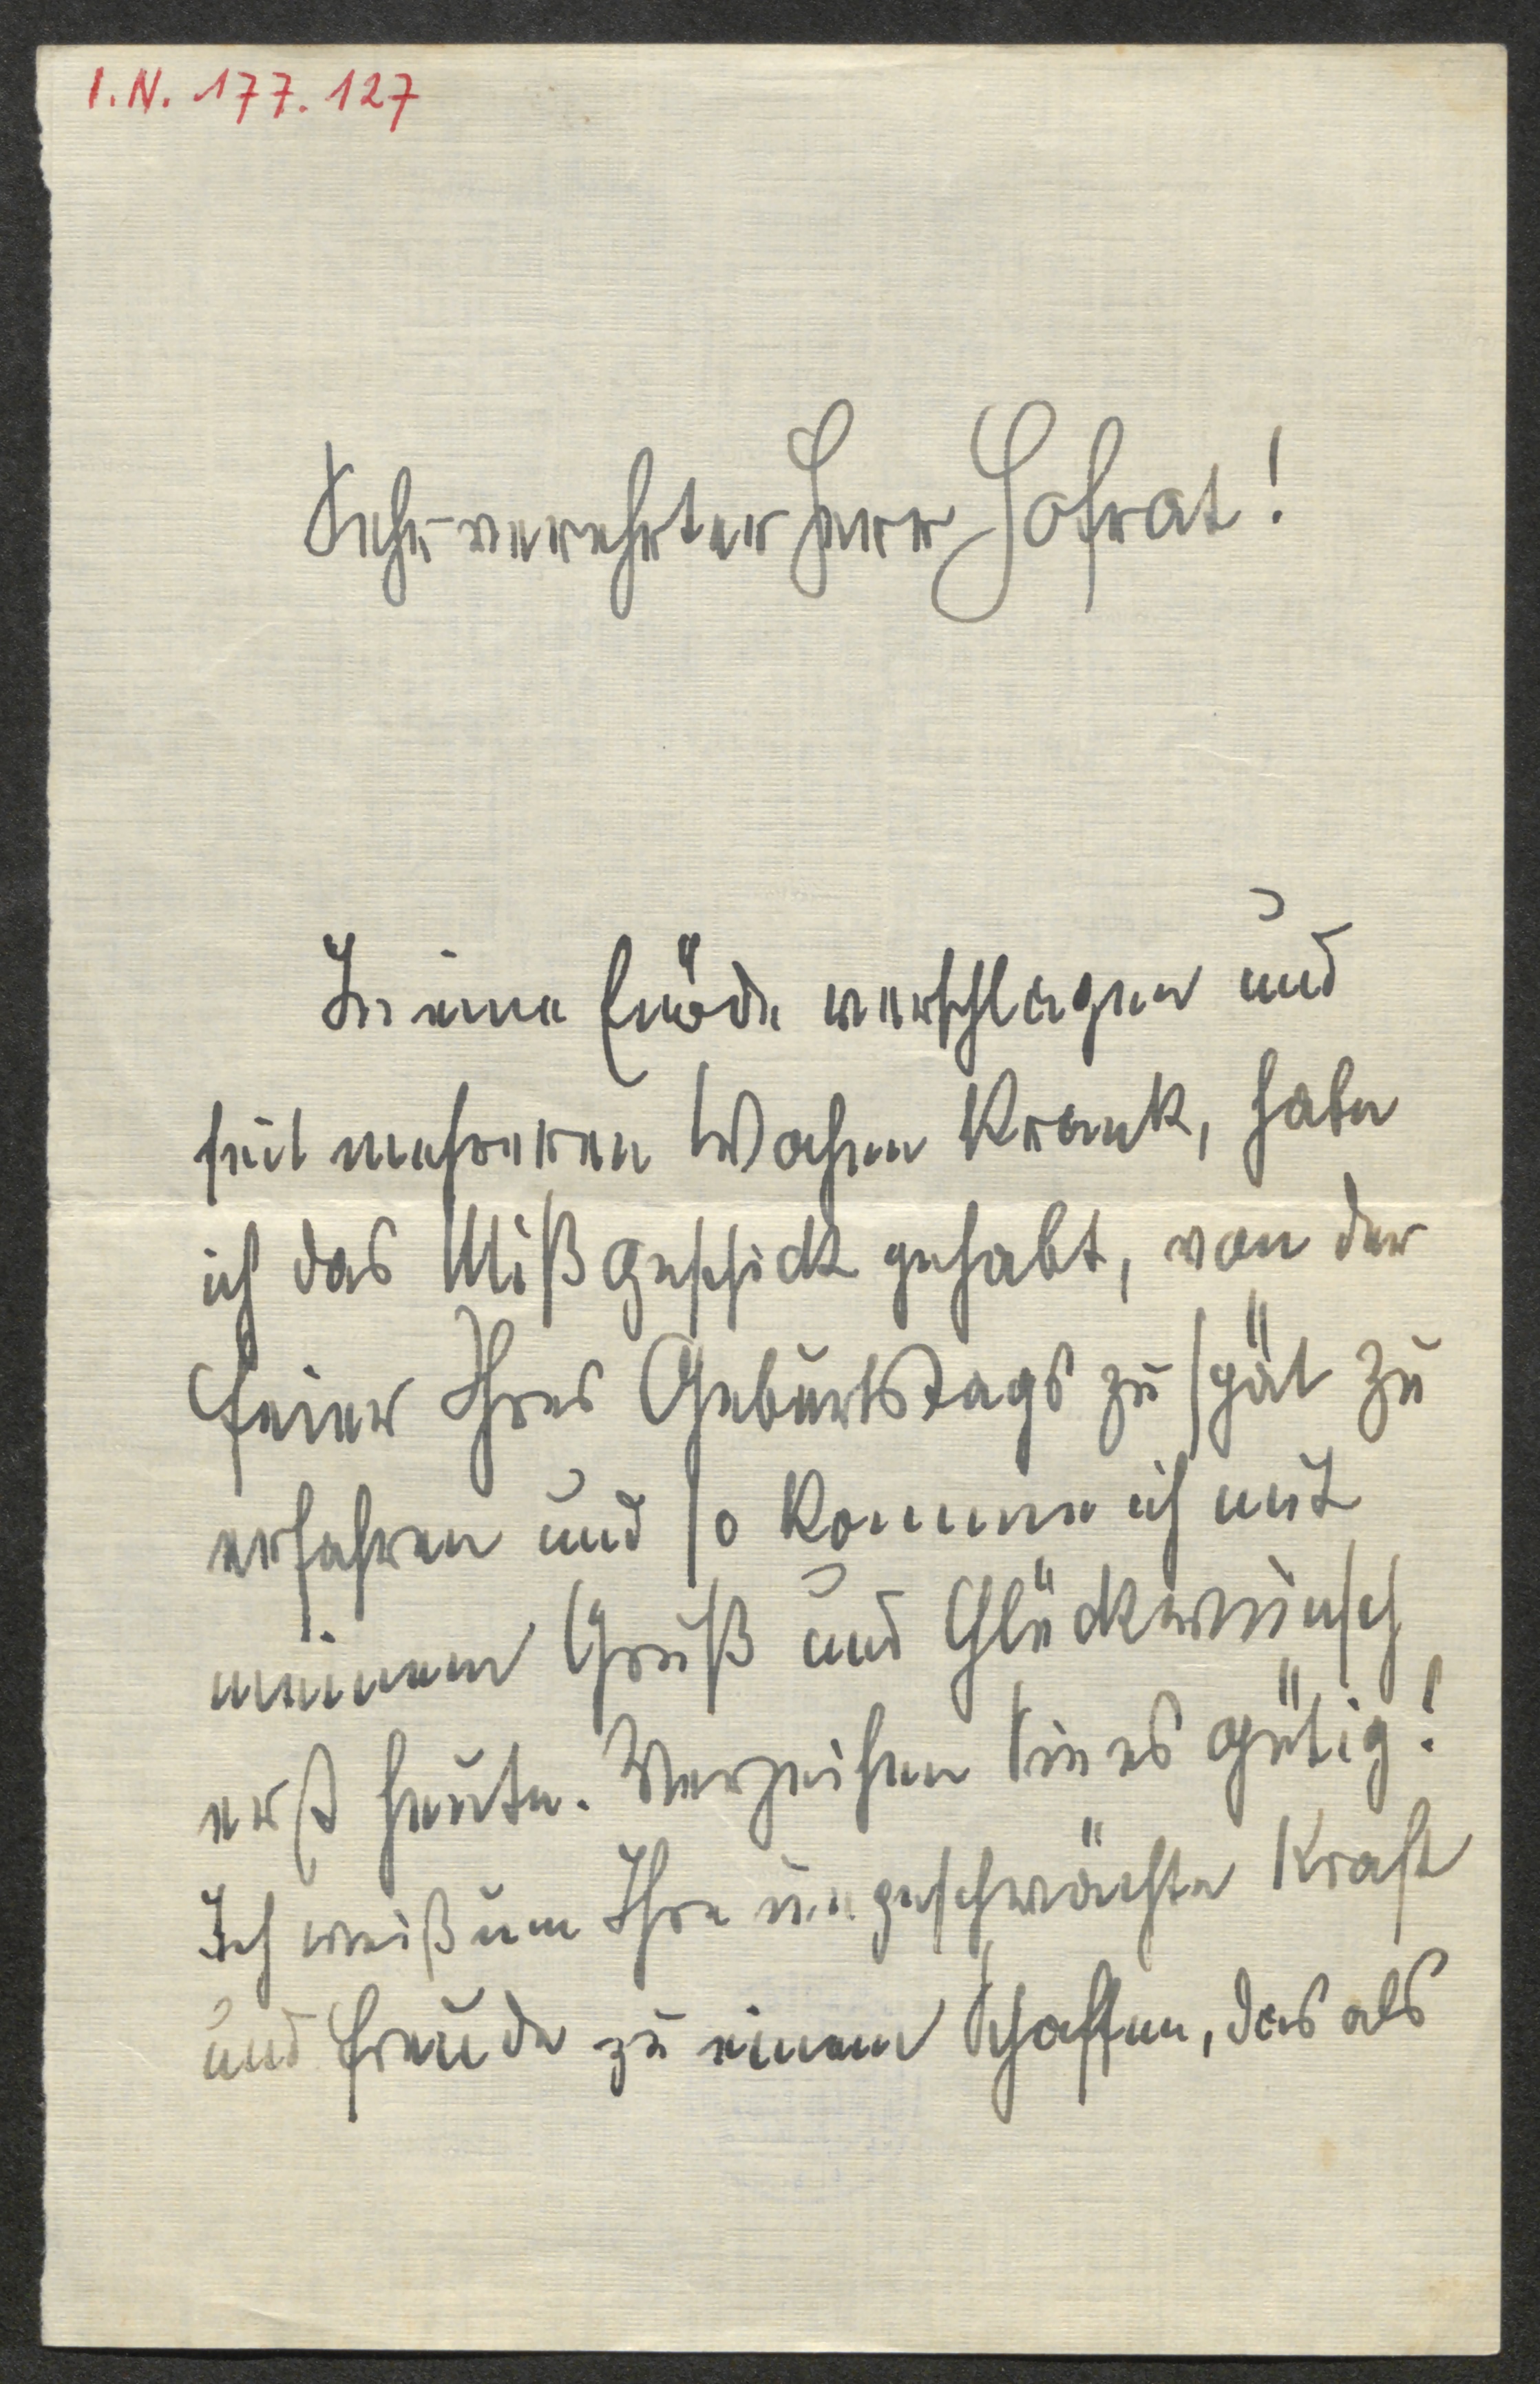 I.N. 177.127
Sehr verehrter Herr Hofrat!
In eine Einöde verschlagen und
seit mehreren Wochen krank, habe
ich das Mißgeschick gehabt, von der
Feier Ihres Geburtstags zu spät zu
erfahren und so komme ich mit
meinem Gruß und Glückwunsch
erst heute. Verzeihen Sie es gütig!
Ich weiß um Ihre ungeschwächte Kraft
und Freude zu einem Schaffen, das als